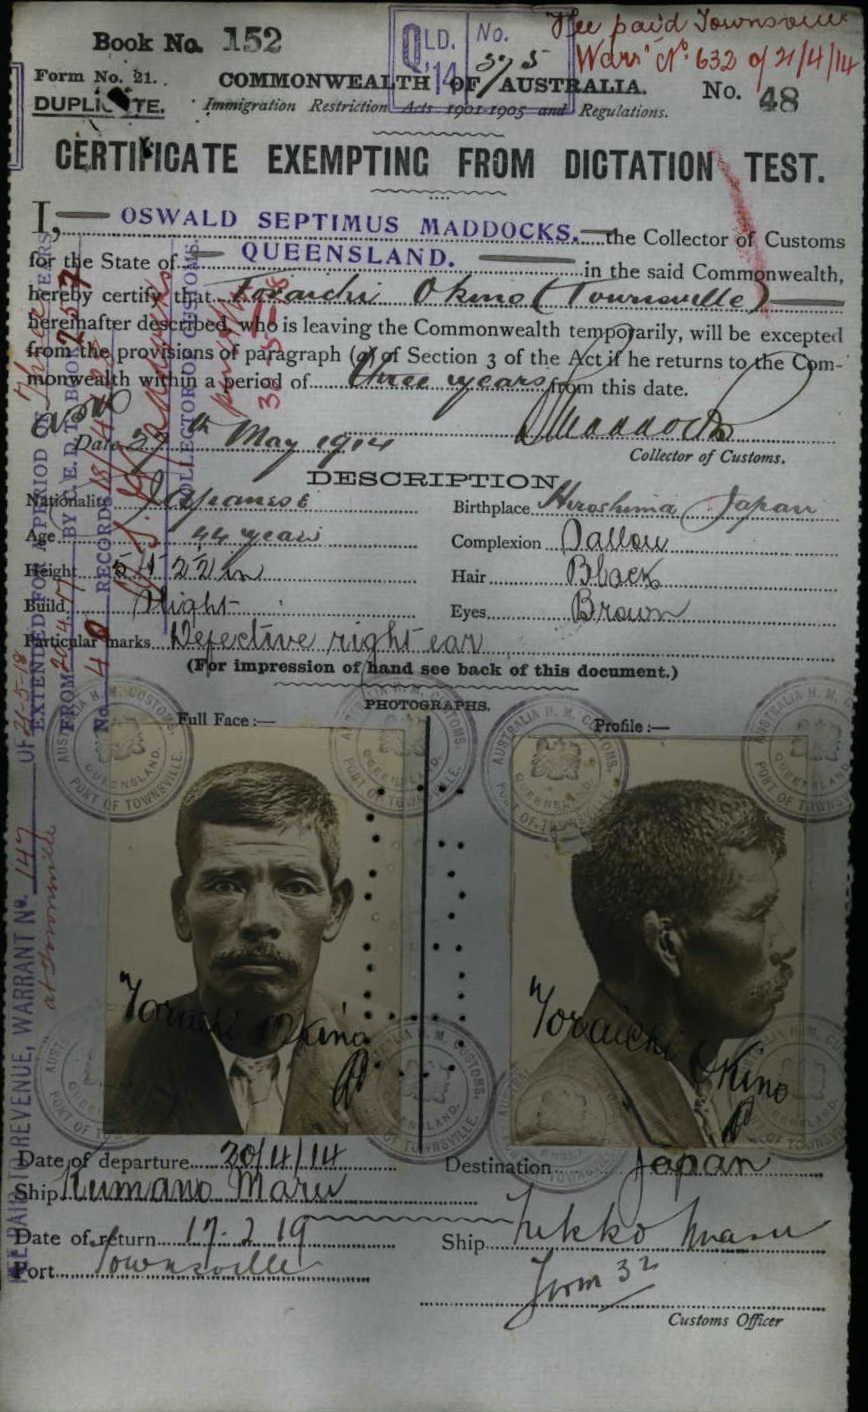 Fee paid Townsville
Book No. 152
QLD. No.
'14 375
Warr't No. 632 of 21/4/14
Form No. 21.
COMMONWEALTH OF AUSTRALIA.
No. 48
DUPLICATE.
Immigration Restriction Acts 1901-1905 and Regulations.
CERTIFICATE EXEMPTING FROM DICTATION TEST.
I, OSWALD SEPTIMUS MADDOCKS. the Collector of Customs
for the State of QUEENSLAND. in the said Commonwealth,
hereby certify that Toraichi Okino (Townsville)
hereinafter described, who is leaving the Commonwealth temporarily, will be excepted
from the provisions of paragraph (a) of Section 3 of the Act if he returns to the Com-
monwealth within a period of three years from this date.
Date 27th May 1914
Collector of Customs.
DESCRIPTION.
Nationality Japanese
Birthplace Hiroshima Japan
Age 44 years
Complexion Sallow
Height 5 ft 2½ in
Hair Black
Build Slight
Eyes Brown
Particular marks Defective right ear
(For impression of hand see back of this document.)
PHOTOGRAPHS.
Full Face :—
Profile :—
AUSTRALIA H. M. CUSTOMS.
QUEENSLAND.
PORT OF TOWNSVILLE.
Toraichi Okino
Toraichi Okino
Date of departure 20/4/14
Destination Japan
Ship Kumano Maru
Date of return 17. 2. 19
Ship Nikko Maru
Port Townsville
Form 32
Customs Officer
EXTENDED FOR A PERIOD OF Three YEARS
FROM BY C.E.D.T. BOOK 257
No. 40 RECORDS 18/4
COLLECTOR OF CUSTOMS.
FEE PAID TO REVENUE, WARRANT No. 147 OF 21-5-18
at Townsville